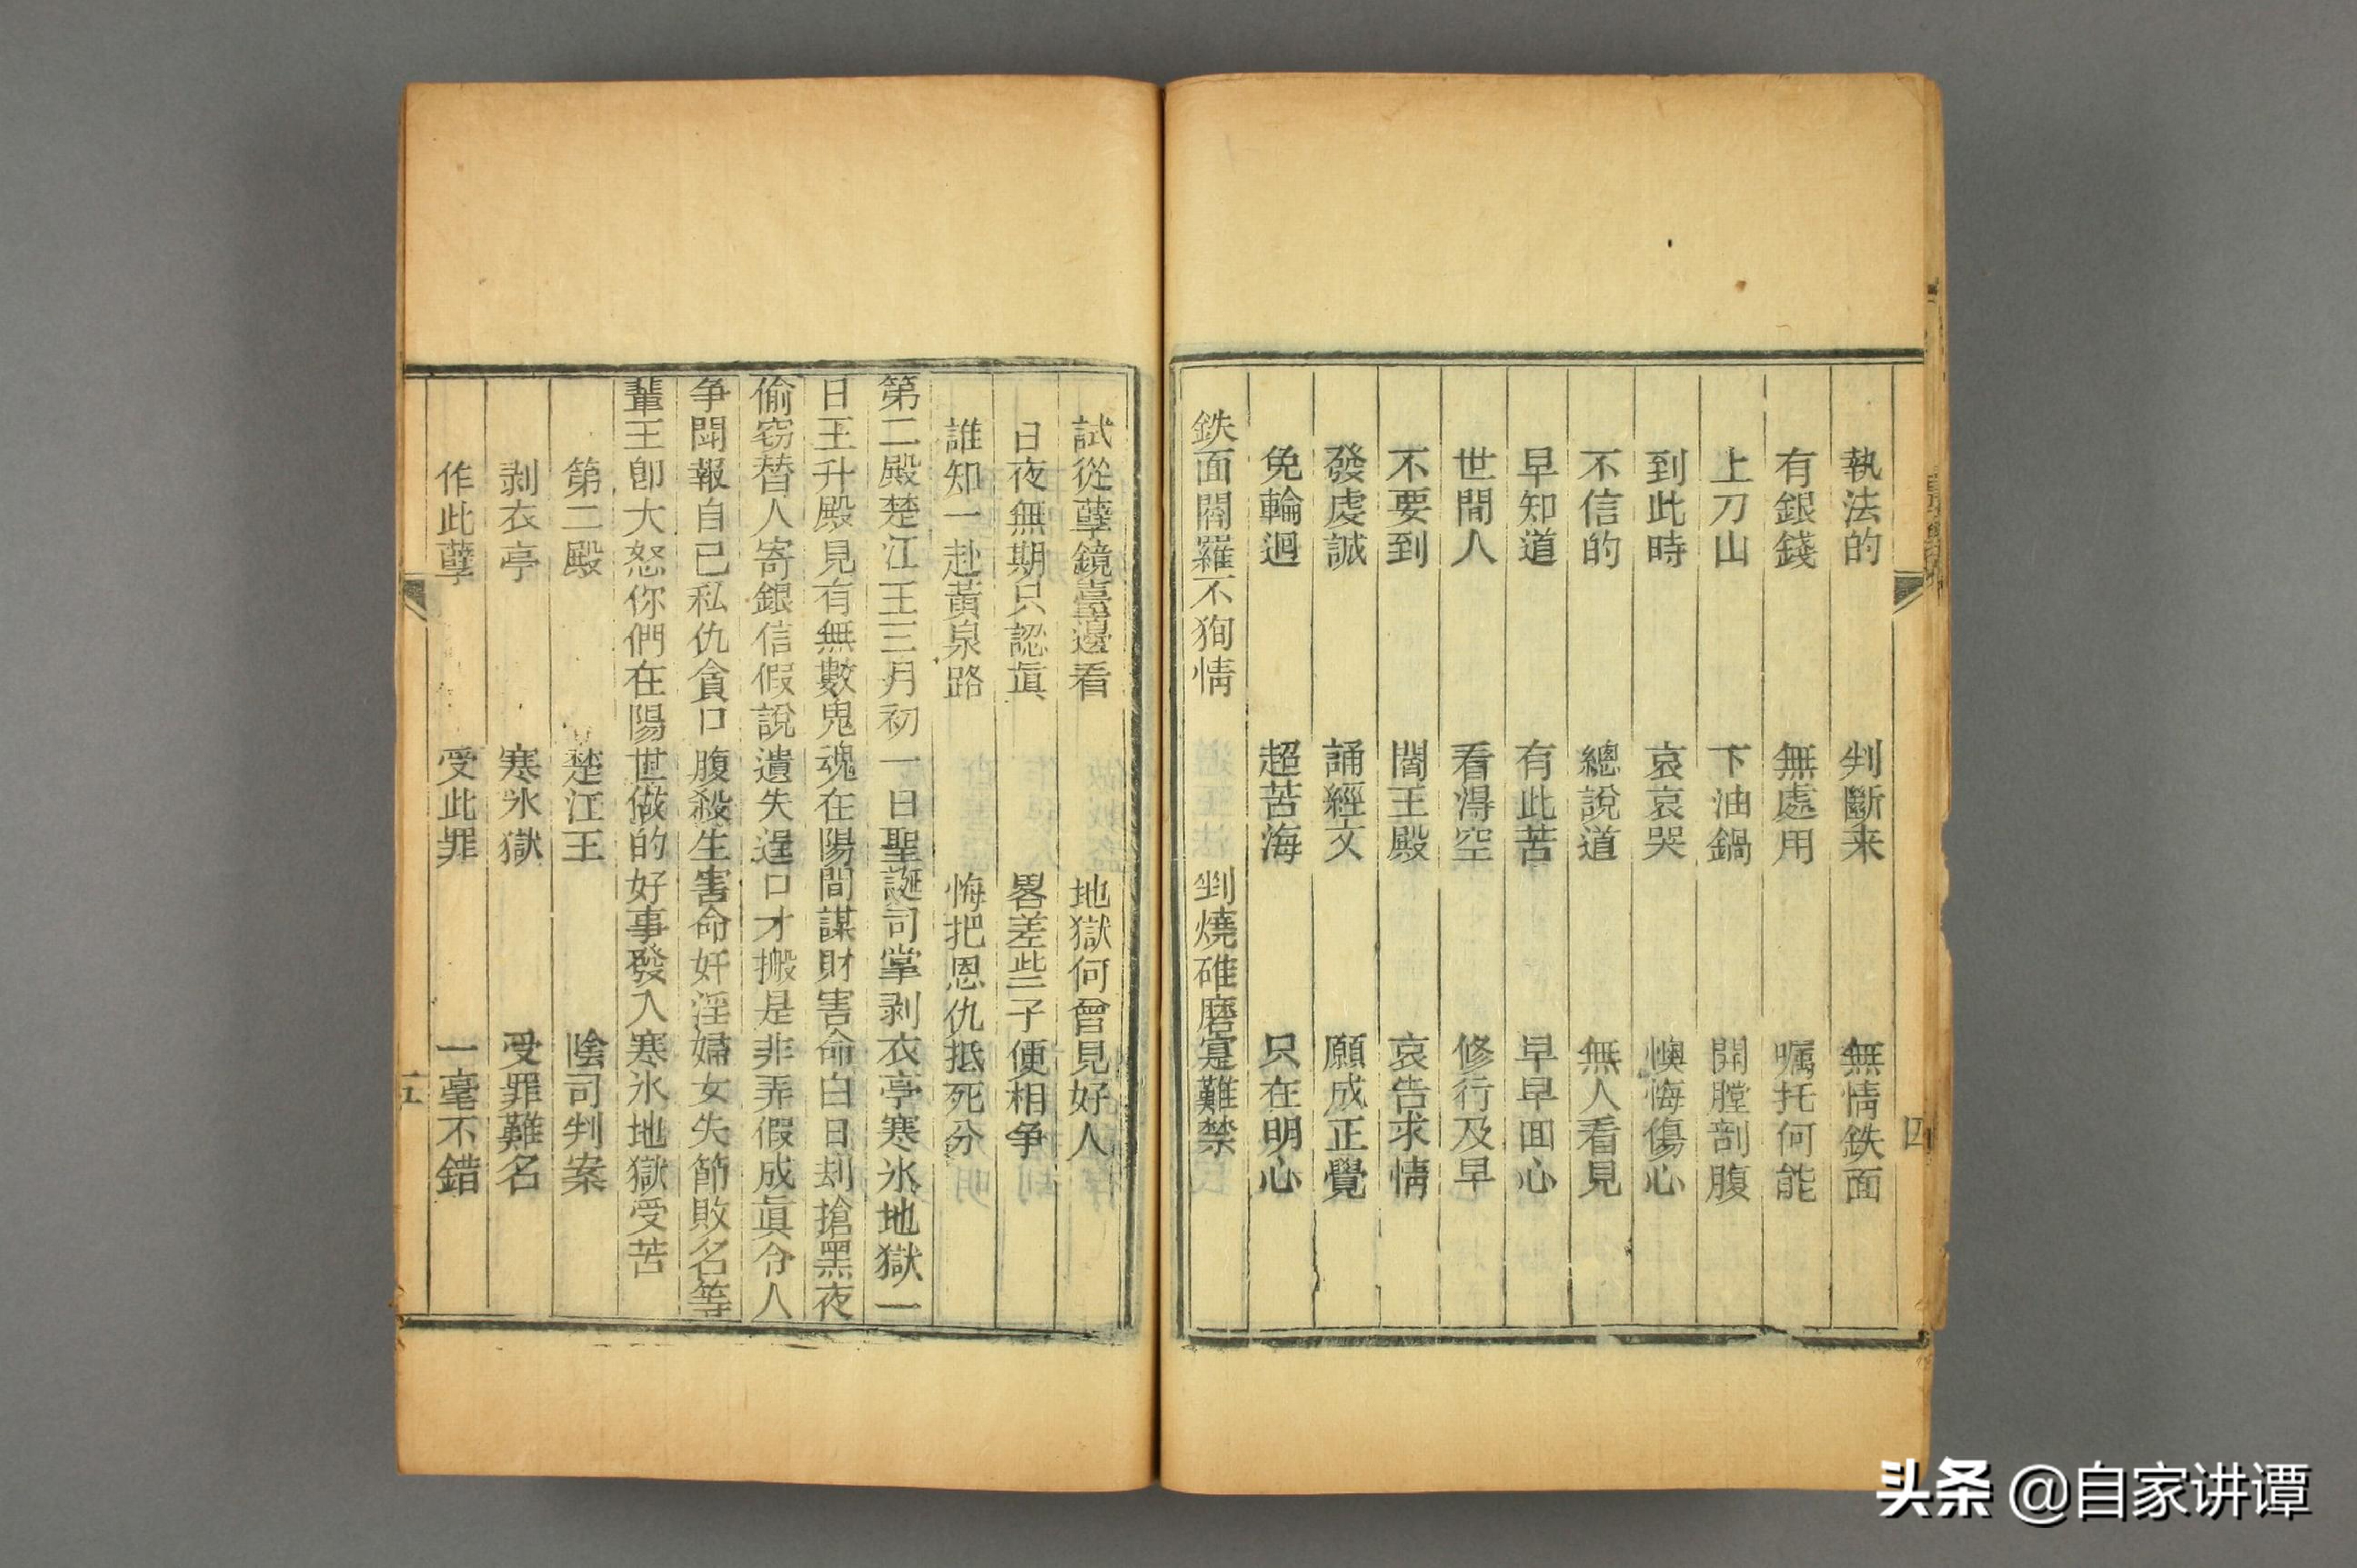 執法的 判斷来 無情鉄面
有銀錢 無處用 嘱托何能
上刀山 下油鍋 開膛剖腹
到此時 哀哀哭 懊悔傷心
不信的 總說道 無人看見
早知道 有此苦 早早囬心
世間人 看得空 修行及早
不要到 閻王殿 哀告求情
發虔誠 誦經文 願成正覺
免輪迴 超苦海 只在明心
鉄面閻羅不狥情 剉燒碓磨寔難禁
四
試從孽鏡臺邊看 地獄何曾見好人
日夜無期只認眞 畧差些子便相争
誰知一赴黃泉路 悔把恩仇抵死分
第二殿楚江王三月初一日聖誕司掌剥衣亭寒氷地獄一
日王升殿見有無數鬼魂在陽間謀財害命白日刼搶黑夜
偷窃替人寄銀信假說遺失逞口才搬是非弄假成眞令人
争鬪報自己私仇貪口腹殺生害命奸淫婦女失節敗名等
輩王卽大怒你們在陽世做的好事發入寒氷地獄受苦
第二殿 楚江王 陰司判案
剥衣亭 寒氷獄 受罪難名
作此孽 受此罪 一毫不錯
五
头条 @自家讲谭